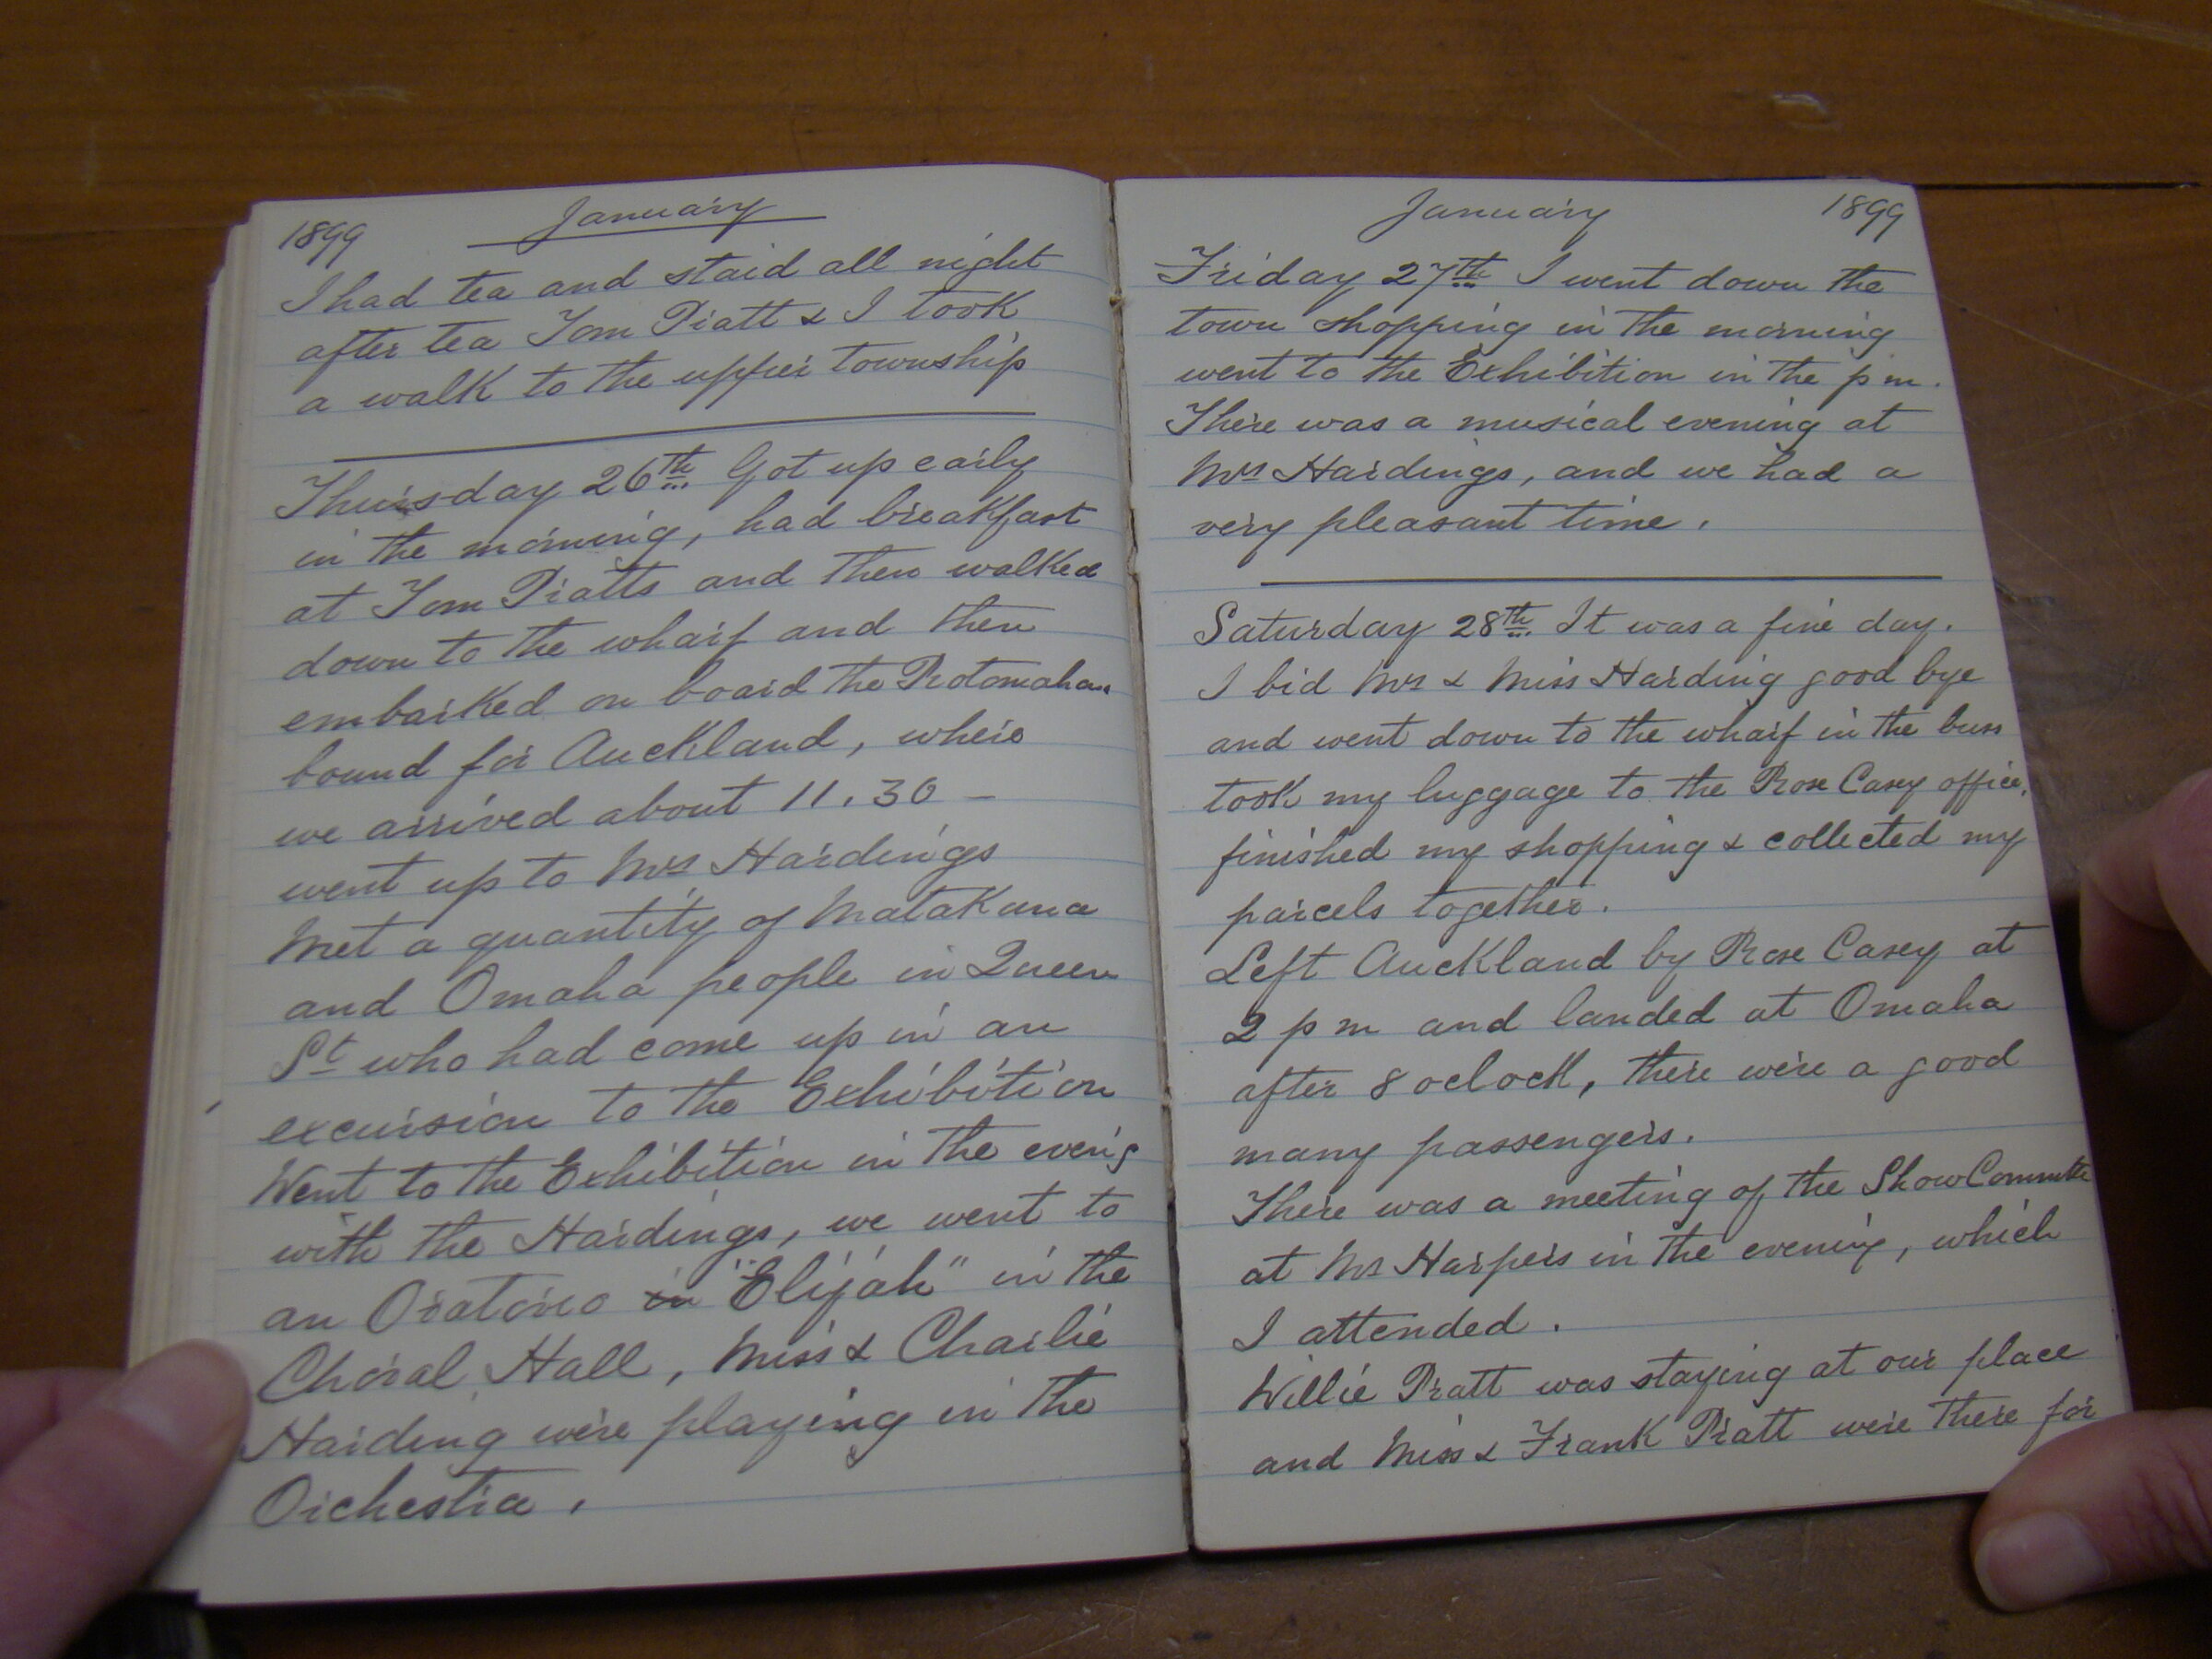 1899 January
I had tea and staid all night
after tea Tom Pratt & I took
a walk to the upper township
Thursday 26th Got up early
in the morning, had breakfast
at Tom Pratts and then walked
down to the wharf and then
embarked on board the Rotomahana
bound for Auckland, where
we arrived about 11.30 –
went up to Mrs Hardings
Met a quantity of Matakana
and Omaha people in Queen
St who had come up in an
excursion to the Exhibition
Went to the Exhibition in the even'g
with the Hardings, we went to
an Oratorio in "Elijah" in the
Choral Hall, Miss & Charlie
Harding were playing in the
Orchestra.
January 1899
Friday 27th I went down the
town shopping in the morning
went to the Exhibition in the p m.
There was a musical evening at
Mrs Hardings, and we had a
very pleasant time.
Saturday 28th. It was a fine day.
I bid Mrs & Miss Harding good bye
and went down to the wharf in the buss
took my luggage to the Rose Casey office,
finished my shopping & collected my
parcels together.
Left Auckland by Rose Casey at
2 p m and landed at Omaha
after 8 oclock, there were a good
many passengers.
There was a meeting of the Show Committe
at Mr Harpers in the evening, which
I attended.
Willie Pratt was staying at our place
and Miss & Frank Pratt were there for